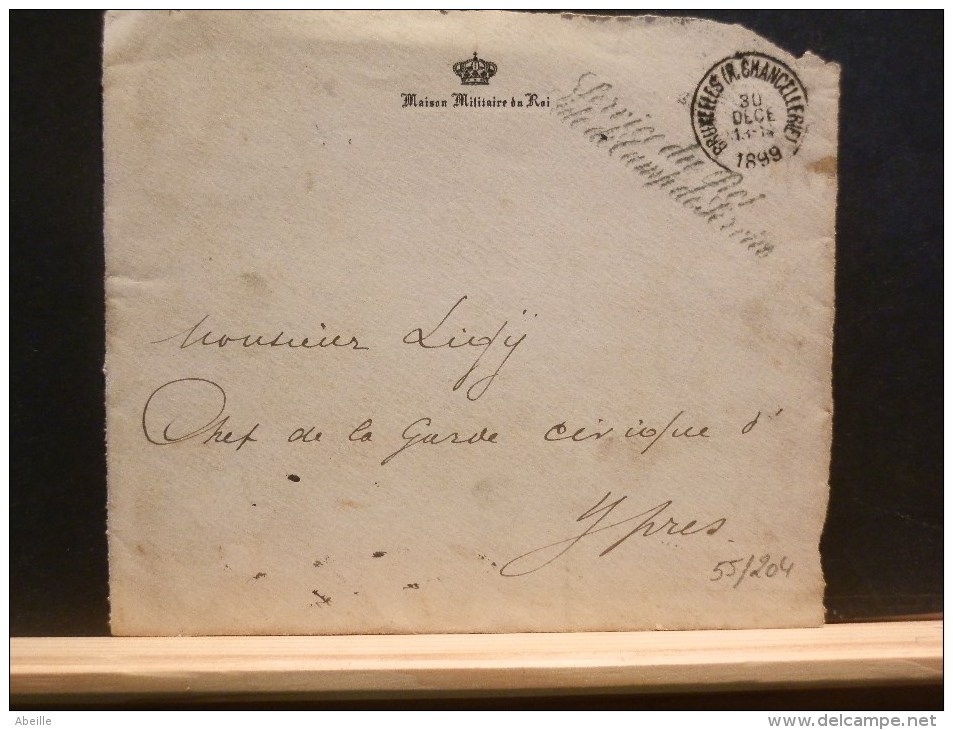 Maison Militaire du Roi
Service du Roi
Aide de Camp de Service
BRUXELLES (R. CHANCELLERIE)
30
DECE
1899
Monsieur Ligÿ
Chef de la Garde civique d'
Ypres
55/204
Abeille
www.delcampe.net